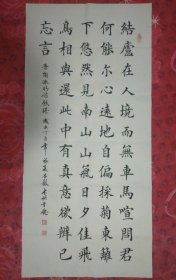 結廬在人境而無車馬喧問君
何能尔心遠地自偏採菊東籬
下悠然見南山山氣日夕佳飛
鳥相與還此中有真意欲辯已
忘言